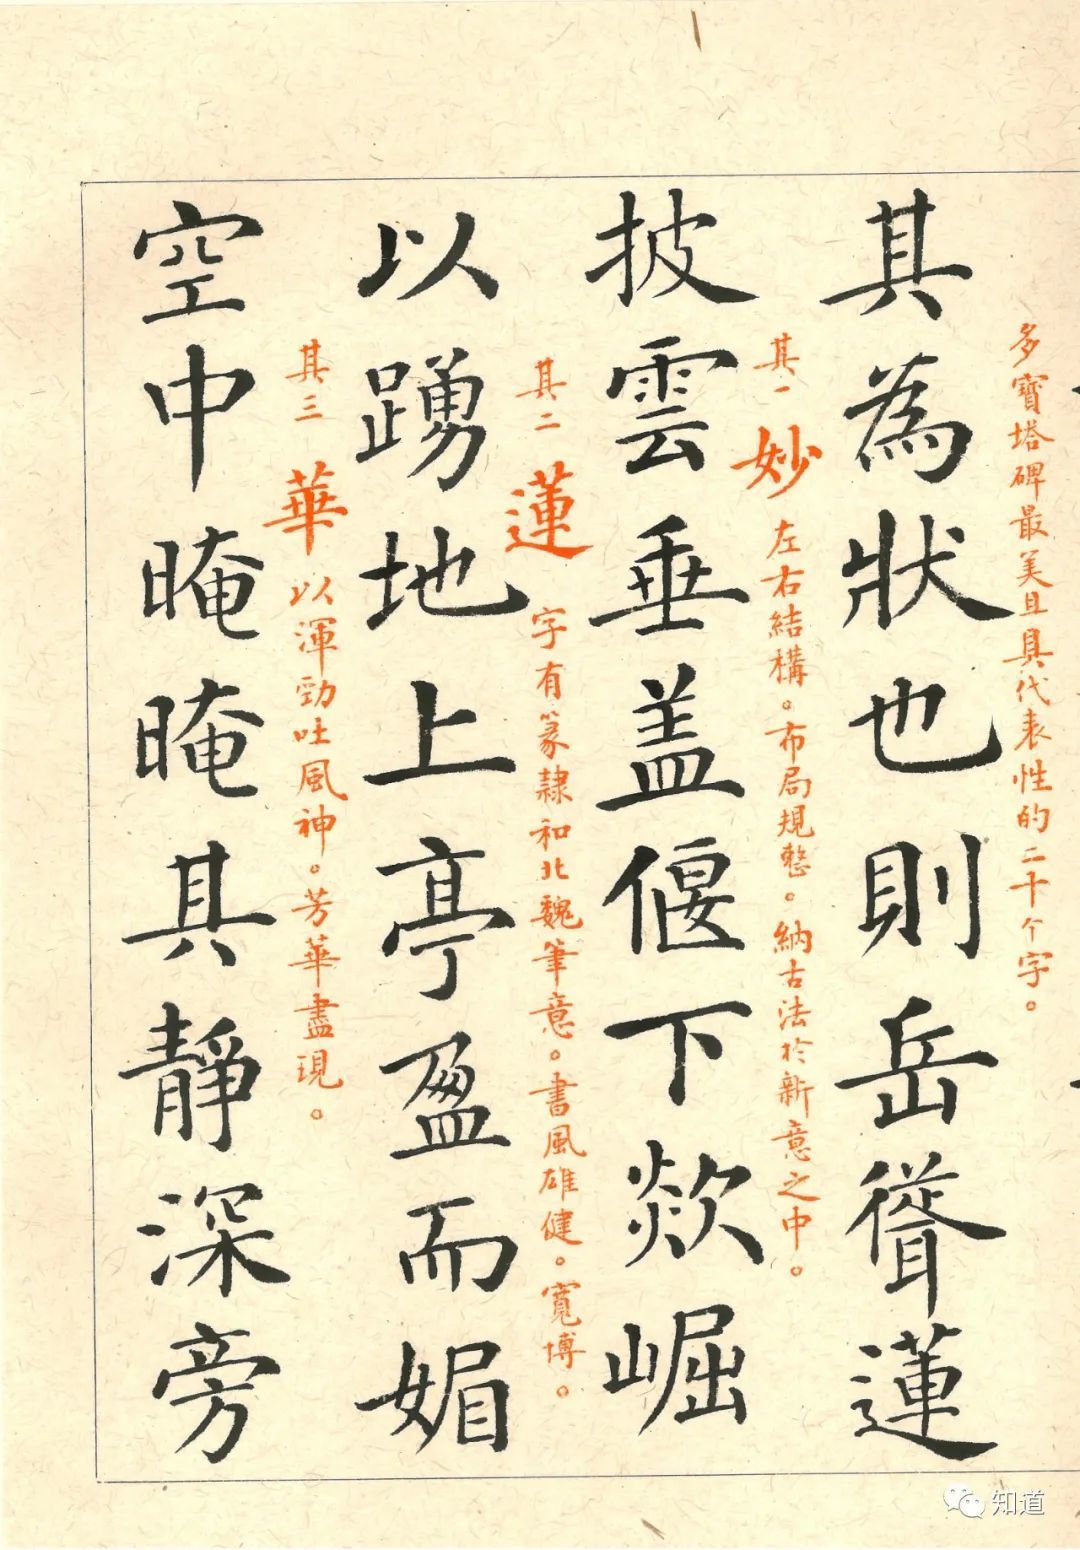 多寶塔碑最美且具代表性的二十个字。
其為狀也則岳聳蓮
其一 妙 左右結構。布局規整。納古法於新意之中。
披雲垂盖偃下欻崛
其二 蓮 字有篆隸和北魏筆意。書風雄健。寬博。
以踴地上亭盈而媚
其三 華 以渾勁吐風神。芳華盡現。
空中晻晻其靜深旁
知道